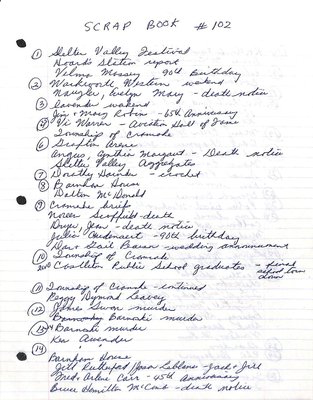 SCRAP BOOK #102
① Slelter Valley Festival
Hoards Station report
Velma Massey 90th Birthday
② Warkworth Western weekend
Naugler, Evelyn Mary - death notice
③ Lavender weekend
Jim & Mary Robin - 65th Anniversary
④ Vi Warren - Aviation Hall of Fame
Township of Cramahe
⑥ Grafton Arena
Angus, Cynthia Margaret - Death notice
Slelter Valley Aggregates
⑦ Dorothy - crochet
⑧ Barnham House
Dalton McDonald
⑨ Cramahe briefs
Noreen Scoffield - death
Drye, Jean - death notice
Julia - 90th birthday
Gail Pearson - wedding announcement
⑩ Township of Cramahe
Castleton Public School graduates - school torn down
⑪ Township of Cramahe - continued
Peggy Dymond Leavey
⑫ James Giwon murder
Barnaski murder
⑬ Barnaski murder
Ken Awender
⑭
Barnham House
Jeff Rutherford / Jason Leblanc - Jack & Jill
Fred & Arlene Carr - 45th Anniversary
Bruce Hamilton McComb - death notice